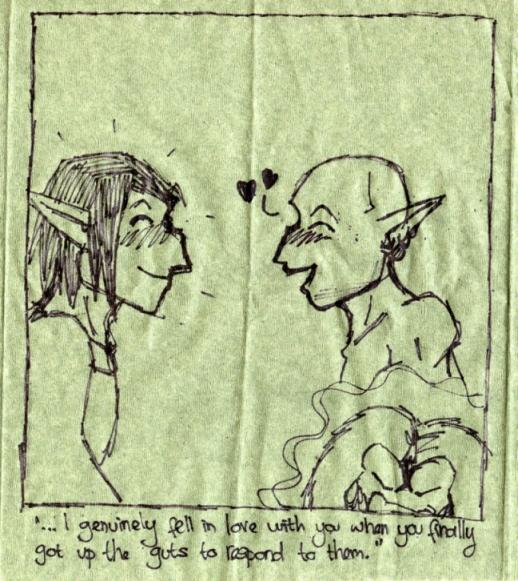 "... I genuinely fell in love with you when you finally
got up the guts to respond to them."